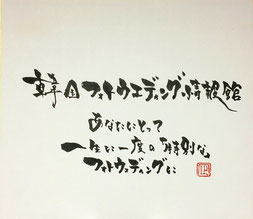 韓国フォトウエディング情報館
あなたにとって
一生に一度の特別な
フォトウェディングに